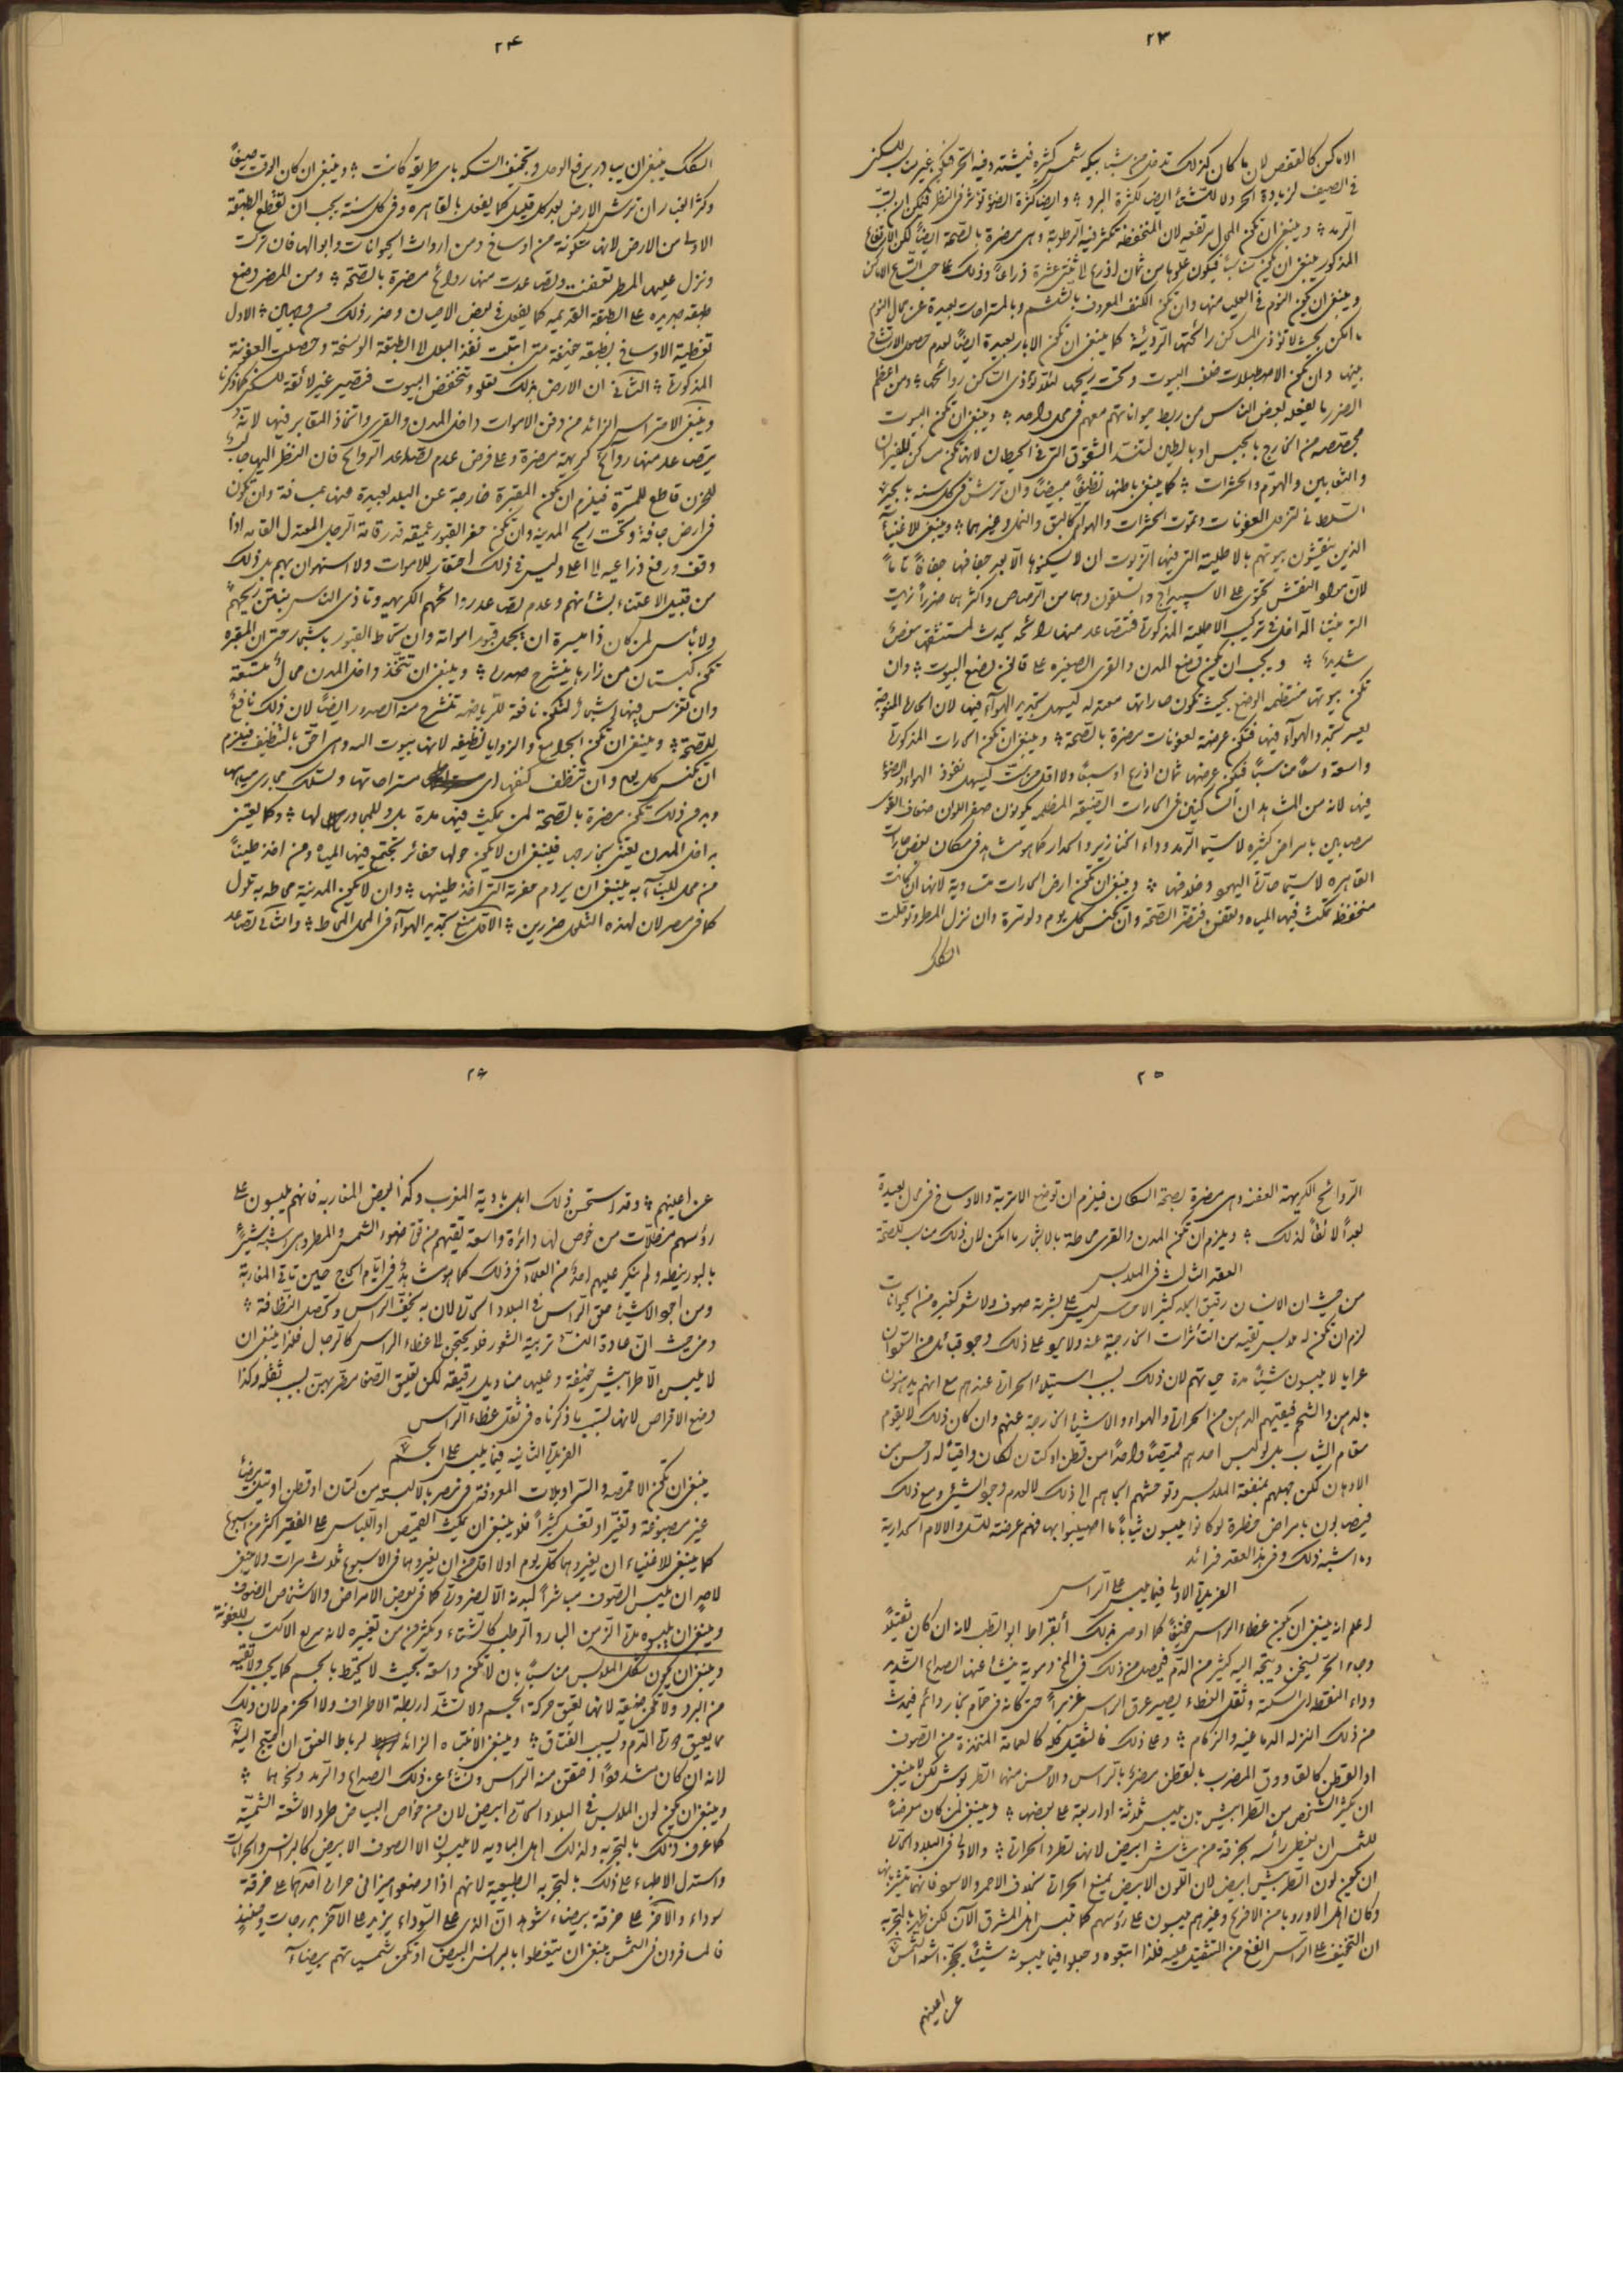 ٢٣
الاماكن كالقفص لان ما كان كذلك تدخل من شبابيكه شمس كثيرة فيشتد فيه الحر فيكون غير مناسب للسكنى
في الصيف لزيادة الحر ولا للشتاء ايضا لكثرة البرد وايضا كثرة الضوء تؤثر في النظر فيمكن ان تسبب
الرمد وينبغي ان تكون المحال مرتفعة لان المنخفضة تكثر فيها الرطوبة وهي مضرة بالصحة ايضا لكن الارتفاع
المذكور ينبغي ان يكون مناسبا فيكون علوها من ثمان اذرع الى ثنتي عشرة ذراعا وذلك على حسب اتساع الاماكن
وينبغي ان يكون النوم في العليا منها وان تكون الكنف المعروفة بالششم وبالمستراحات بعيدة عن محال النوم
ما امكن بحيث لا تؤذي الساكن رائحتها الرديئة كما ينبغي ان تكون الابار بعيدة ايضا لعدم حصول الارتشاح
بينها وان تكون الاصطبلات خلف البيوت وتحت ريحها لئلا تؤذي الساكن روائحها ومن اعظم
الضرر ما يفعله بعض الناس من ربط حيواناتهم معهم في محل واحد وينبغي ان تكون البيوت
مجصصة من الخارج بالجبس او بالطين لتنسد الشقوق التي في الحيطان لانها تكون مساكن للفيران
والثعابين والهوام والحشرات كما ينبغي باطنها نظيفا مبيضا وان ترش في كل سنة بالجير
السلطاني لتزول العفونات وتموت الحشرات والهوام كالبق والنمل وغيرهما وينبغي للاغنياء
الذين ينقشون بيوتهم بالاطلية التي فيها الزيوت ان لا يسكنوها الا بعد جفافها جفافا تاما
لان هذا النقش يحتوي على الاسبيداج والسلقون وهما من الرصاص واكثرهما ضررا زيت
الترمنتينا الداخل في تركيب الاطلية المذكورة فتتصاعد منها رائحة يحدث لمستنشقها مرض
شديد ويجب ان يكون وضع المدن والقرى الصغيرة على قانون وضع البيوت وان
تكون بيوتها منتظمة الوضع بحيث تكون حاراتها معتدلة ليسهل تجديد الهواء فيها لان الحارات المعوجة
يعسر تجدد الهواء فيها فتكون عرضة لعفونات مضرة بالصحة وينبغي ان تكون الحارات المذكورة
واسعة وسعا مناسبا فيكون عرضها ثمان اذرع او سبعا ولا اقل من ست ليسهل نفوذ الهواء والضوء
فيها لانه من المشاهد ان الساكنين في الحارات الضيقة المظلمة يكونون صفر اللون ضعاف القوى
مصابين بامراض كثيرة لاسيما الرمد وداء الخنازير والحدار كما هو مشاهد في سكان بعض حارات
القاهرة لاسيما حارة اليهود وخلافها وينبغي ان تكون ارض الحارات متساوية لانها ان كانت
منخفظة مكثت فيها المياه وتعفن فتضر الصحة وان تكنس كل يوم ولو مرة وان نزل المطر وتوحلت
السكك
٢٤
السكك ينبغي ان يبادر برفع الوحل وتجفيف السكة باي طريقة كانت وينبغي ان كان الوقت صيفا
وكثر الغبار ان ترش الارض بعد كل قليل كما يفعل بالقاهرة وفي كل سنة يجب ان تقطع الطبقة
الاولى من الارض لانها متكونة من اوساخ ومن ارواث الحيوانات وابوالها فان تركت
ونزل عليها المطر تعفنت وتصاعدت منها روائح مضرة بالصحة ومن المضر وضع
طبقة جديدة على الطبقة القديمة كما يفعل في بعض الاحيان وضرر ذلك من وجهين الاول
تغطية الاوساخ بطبقة خفيفة متى ابتلت نفذ البلل الى الطبقة الوسخة وحصلت العفونة
المذكورة الثاني ان الارض بذلك تعلو وتنخفض البيوت فتصير غير لائقة للسكنى كما ذكرنا
وينبغي الاحتراس الزائد من دفن الاموات داخل المدن والقرى واتخاذ المقابر فيها لانه
يتصاعد منها روائح كريهة مضرة وعلى فرض عدم تصاعد الروائح فان النظر اليها جالب
للحزن قاطع للمسرة فيلزم ان تكون المقبرة خارجة عن البلد بعيدة عنها بمسافة وان تكون
في ارض جافة وتحت ريح المدينة وان تكون حفر القبور عميقة قدر قامة الرجل المعتدل القامة اذا
وقف ورفع ذراعيه الى اعلى وليس في ذلك احتقار للاموات ولا استهوان بهم بل ذلك
من قبيل الاعتناء بشأنهم وعدم تصاعد روائحهم الكريهة وتأذي الناس بنتن ريحهم
ولا بأس لمن كان ذا ميسرة ان يجمل قبور امواته وان تحاط القبور باشجار حتى ان المقبرة
تكون كبستان من زارها ينشرح صدره وينبغي ان تتخذ داخل المدن محال متسعة
وان تغرس فيها اشجار لتكون نافعة للرياضة تنشرح منه الصدور ايضا لان ذلك نافع
للصحة وينبغي ان تكون الجوامع والزوايا نظيفة لانها بيوت الله وهي احق بالتنظيف فيلزم
ان تكنس كل يوم وان تنظف كنفها اي مستراحاتها وتسلك مجاري مياهها
وبدون ذلك تكون مضرة بالصحة لمن يمكث فيها مدة بل وللمجاورين لها وكما يعتني
بداخل المدن يعتني بخارجها فينبغي ان لا يكون حولها حفائر تجتمع فيها المياه ومن اخذ طينا
من محل للبناء به ينبغي ان يردم حفرته التي اخذ طينها وان لا تكون المدينة محاطة بتلول
كما في مصر لان لهذه التلول ضررين الاول منع تجديد الهواء في المحل المحاط والثاني تصاعد
٢٥
الروائح الكريهة العفنة وهي مضرة بصحة السكان فيلزم ان توضع الاتربة والاوساخ في محال بعيدة
بعدا لائقا لذلك ويلزم ان تكون المدن والقرى محاطة بالاشجار ما امكن لان ذلك مناسب للصحة
العقد الثالث في الملابس
من حيث ان الانسان رقيق الجلد كثير الاحساس ليس على بشرته صوف ولا شعر كغيره من الحيوانات
لزم ان تكون له ملابس تقيه من التأثرات الخارجة عنه ولا يرد على ذلك وجود قبائل من السودان
عرايا لا يلبسون شيئا مدة حياتهم لان ذلك بسبب استيلاء الحرارة عندهم مع انهم يدهنون
بالدهن والشحم فيقيهم الدهن من الحرارة والهواء والاشياء الخارجة عنهم وان كان ذلك لا يقوم
مقام الثياب بل لو لبس احدهم قميصا واحدا من قطن او كتان لكان واقيا له واحسن من
الادهان لكن جهلهم بمنفعة الملابس وتوحشهم الجاهم الى ذلك لا لعدم وجود الشيء ومع ذلك
فيصابون بامراض خطرة لو كانوا يلبسون ثيابا ما اصيبوا بها فهم عرضة للسل والالام الحدارية
وما اشبه ذلك وفي هذا العقد فرائد
الفريدة الاولى فيما يلبس على الراس
اعلم انه ينبغي ان يكون غطاء الراس خفيفا كما اوصى بذلك أبقراط ابو الطب لانه ان كان ثقيلا
وجاء الحر يسخن ويتجه اليه كثير من الدم فيحصل من ذلك في المخ دموية ينشأ عنها الصداع الشديد
وداء النقطة اي السكتة وثقل الغطاء يصير عرق الراس غزيرا حتى كانه في حمام بخار دائم فيحدث
من ذلك النزلة الدماغية والزكام وعلى ذلك فالثقيل كله كالعمامة المتخذة من الصوف
او القطن كالقاووق المضرب بالقطن مضر بالراس والاحسن منهما الطربوش لكن لا ينبغي
ان يكثر الشخص من الطرابيش بان يلبس ثلاثة او اربعة على بعضها وينبغي لمن كان معرضا
للشمس ان يغطي رأسه بخرقة من شاش ابيض لانها تطرد الحرارة والاولى في البلاد الحارة
ان يكون لون الطربوش ابيض لان اللون الابيض يمنع الحرارة بخلاف الاحمر والاسود فانهما يتشربانها
وكان اهل الاوروبا من الافرنج وغيرهم يلبسون على رؤسهم كما تلبس اهل المشرق الآن لكن ظهر بالتجربة
ان التخفيف على الراس انفع من التثقيل عليه فلذا اتبعوه وجعلوا فيما يلبسونه شيئا يحجز اشعة الشمس
عن اعينهم
٢٦
عن اعينهم وقد استحسن ذلك اهل بادية المغرب وكذا بعض المغاربة فانهم يلبسون على
رؤسهم مظلات من خوص لها دائرة واسعة تقيهم من قوة ضوء الشمس والمطر وهي اشبه شيء
بالبورنيطة ولم ينكر عليهم احد من العلماء في ذلك كما هو مشاهد في ايام الحاج حين تاتي المغاربة
ومن اجود الاشياء حلق الراس في البلاد الحارة لان به يخف الراس وتحصل النظافة
ومن حيث ان عادة النساء تربية الشعور فلا يحتجن الى غطاء الراس كالرجال فلذا ينبغي ان
لا يلبسن الا طرابيش خفيفة وعليها مناديل رقيقة لكن تعليق الصفا مضر بهن بسبب ثقله وكذا
وضع الاقراص لانها تسبب ما ذكرناه في ثقل غطاء الراس
الفريدة الثانية فيما يلبس على الجسم
ينبغي ان تكون الاقمصة والسراويلات المعروفة في مصر بالالبسة من كتان او قطن او تيل بيضا
غير مصبوغة وتغير او تغسل كثيرا فلا ينبغي ان يمكث القميص او اللباس على الفقير اكثر من اسبوع
كما ينبغي للاغنياء ان يغيروهما كل يوم اولا اقل من ان يغيروهما في الاسبوع ثلاث مرات ولا ينبغي
لاحد ان يلبس الصوف مباشرا لبدنه الا لضرورة كما في بعض الامراض والاشخاص الضعوف
وينبغي ان يلبسوه مدة الزمن البارد الرطب كالشتاء ويكثرون من تغييره لانه سريع الاكتساب للعفونة
وينبغي ان يكون شكل الملابس مناسبا بان لا تكون واسعة بحيث لا تحيط بالجسم كما يجب ولا تقيه
من البرد ولا تكون ضيقة لانها تعيق حركة الجسم ولا تشد اربطة الاطراف ولا الحزم لان ذلك
مما يعيق دورة الدم ويسبب الفتاق وينبغي الانتباه الزائد لرباط العنق ان احتيج اليه
لانه ان كان مشدودا احتقن منه الراس ونشأ عن ذلك الصداع والرمد ونحوهما
وينبغي ان يكون لون الملابس في البلاد الحارة ابيض لان من خواص البياض طرد الاشعة الشمسية
كما عرف ذلك بالتجربة ولذلك اهل البادية لا يلبسون الا الصوف الابيض كالبرانس والحرامات
واستدل الاطباء على ذلك بالتجربة الطبيعية لانهم اذا وضعوا ميزاني حرارة احدهما على خرقة
سوداء والآخر على خرقة بيضاء شوهد ان الذي على السوداء يزيد على الآخر بدرجات وحينئذ
فالمسافرون في الشمس ينبغي ان يتغطوا بالبرانس البيض او تكون شمسيتهم بيضاء